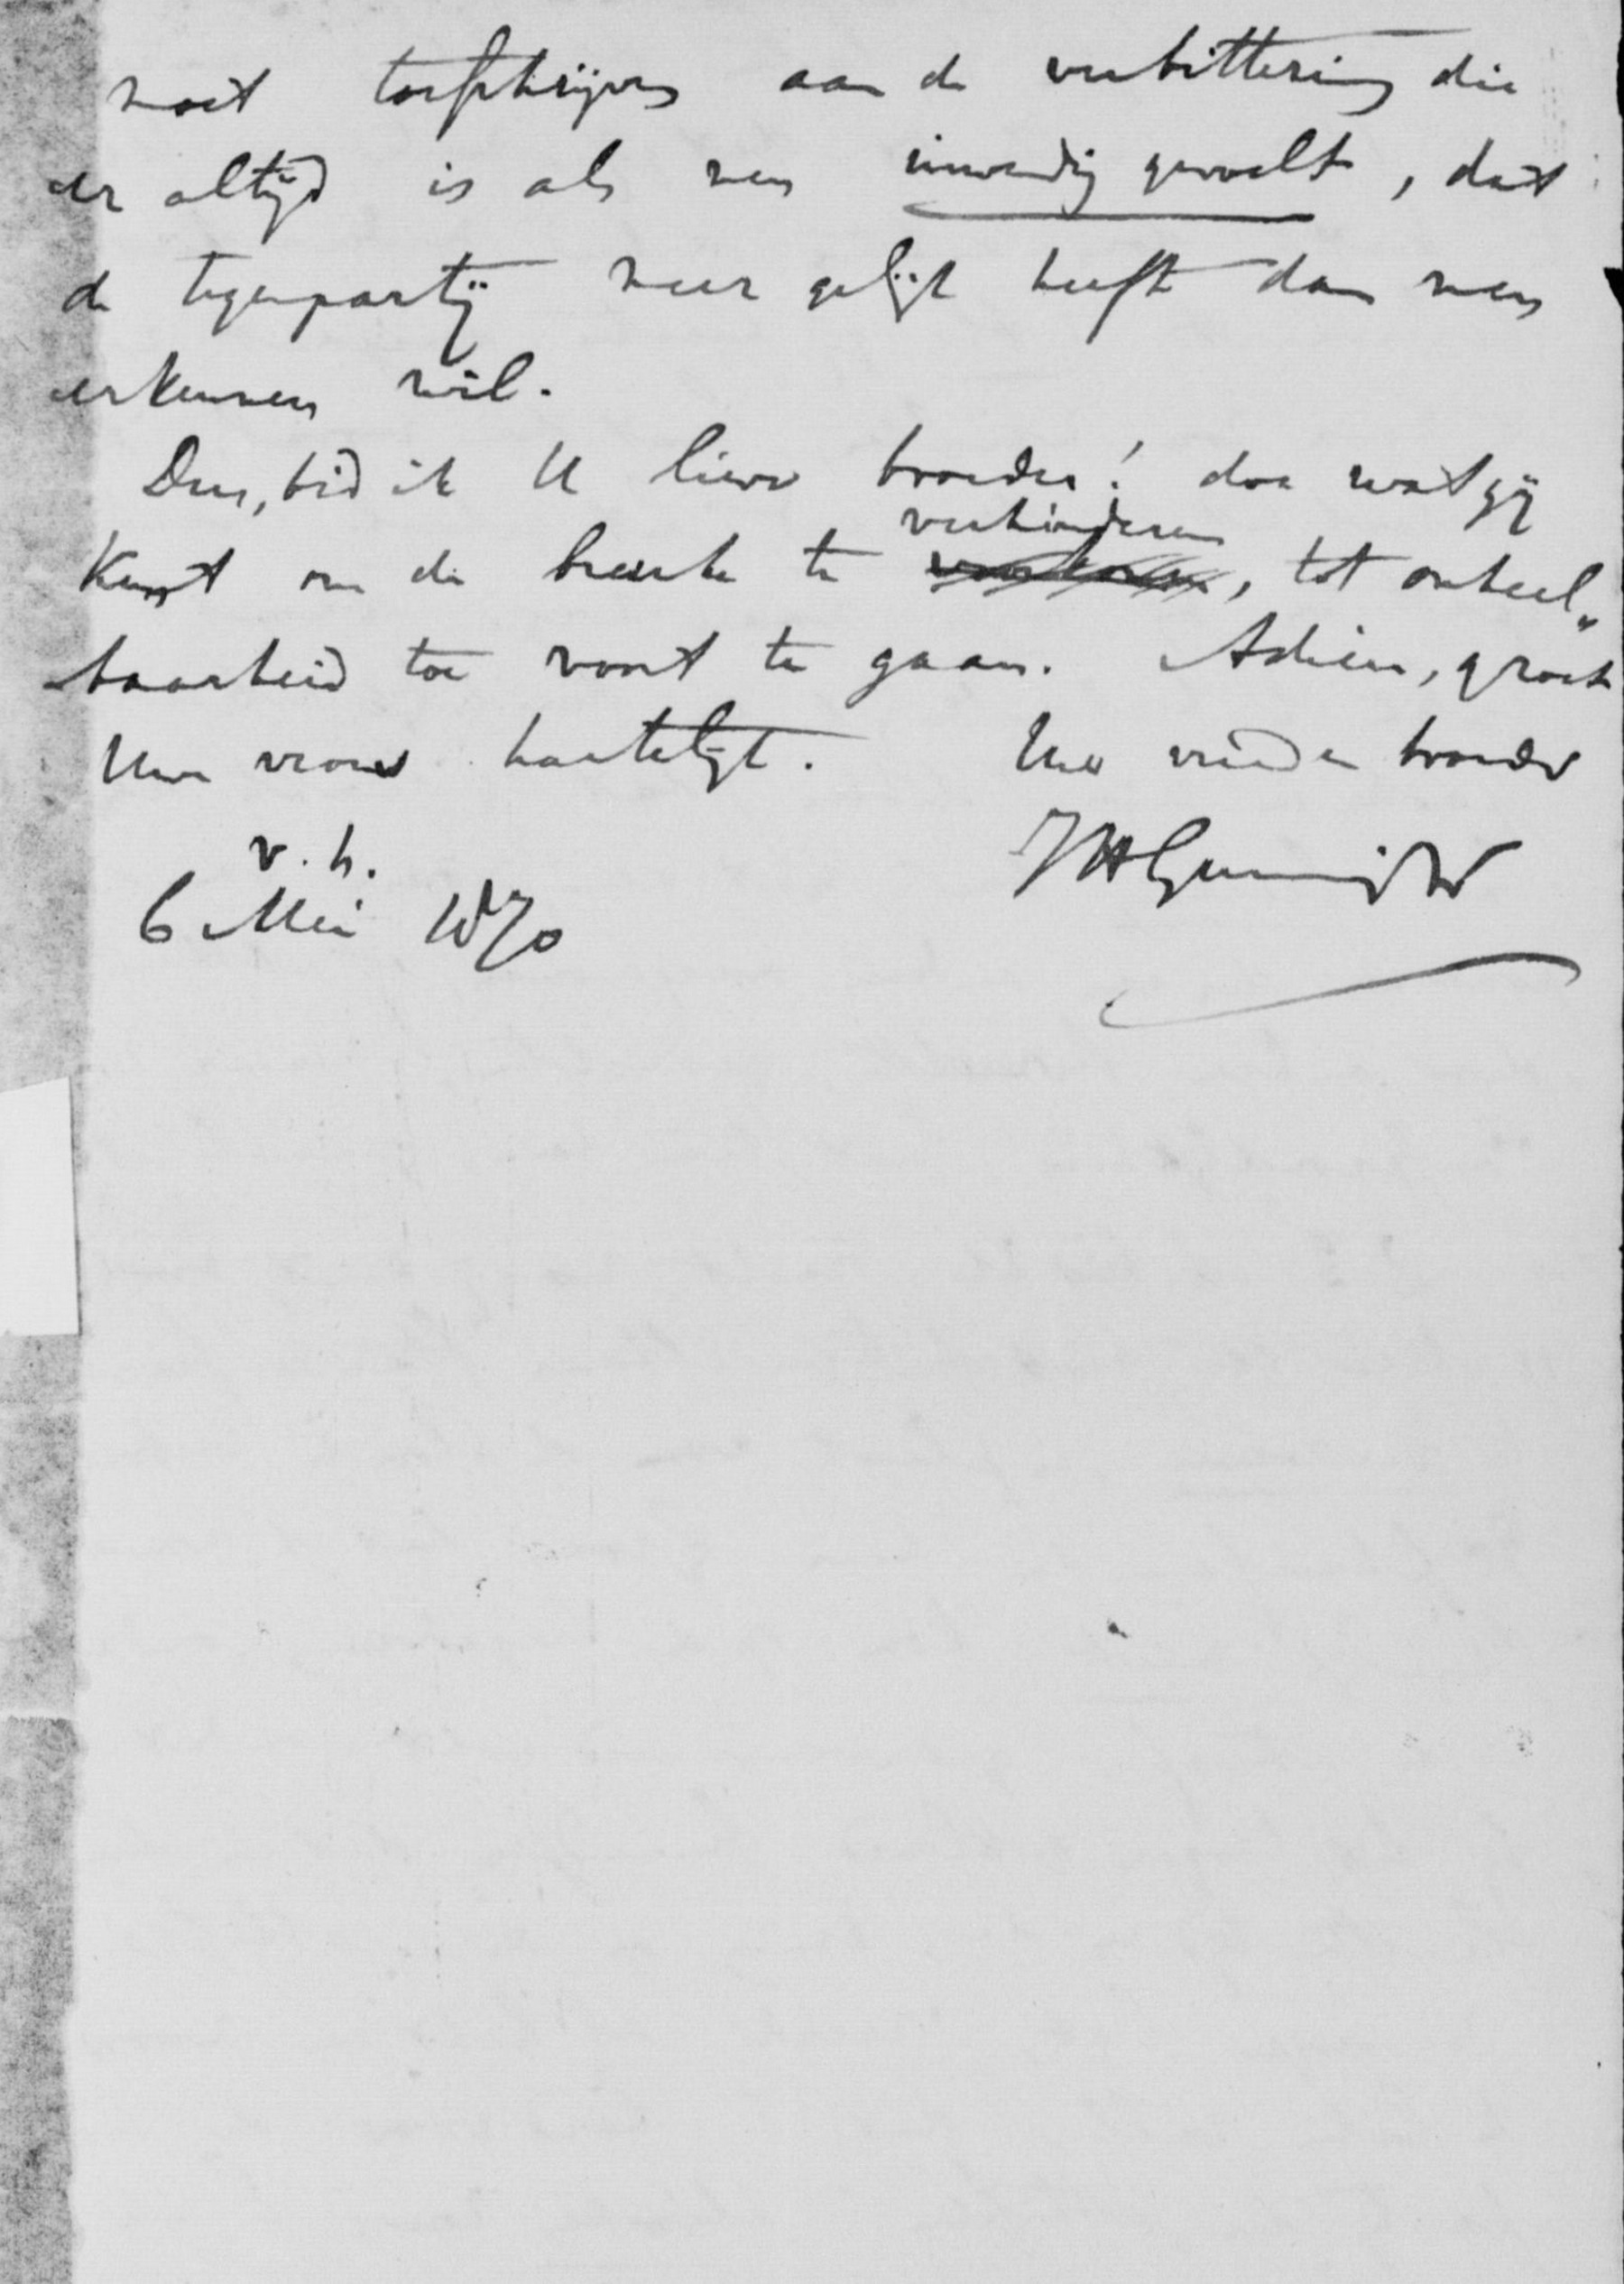 moet toeschrijven aan de verbittering die
er altijd is als men inwendig gevoelt, dat
de tegenpartij meer gelijk heeft dan men
erkennen wil.
Dus, bid ik U lieve broeder! doe wat gij
kunt om de breuke te verhinderen, tot onheel„
baarheid toe voort te gaan. Adieu, groet
Uwe vrouw hartelijk. Uw vriend en broeder
v. h. JHGunningJr
6 Mei 1870